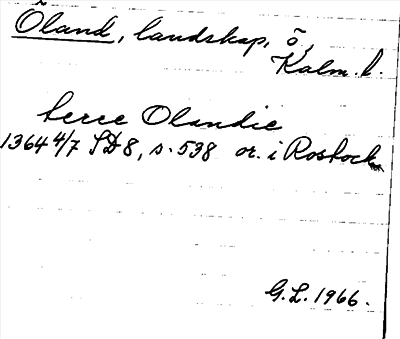 Öland, landskap, ö,
Kalm. l.
terre Olandie
1364 4/7 SD 8, s. 538 or. i Rostock
G.L. 1966.